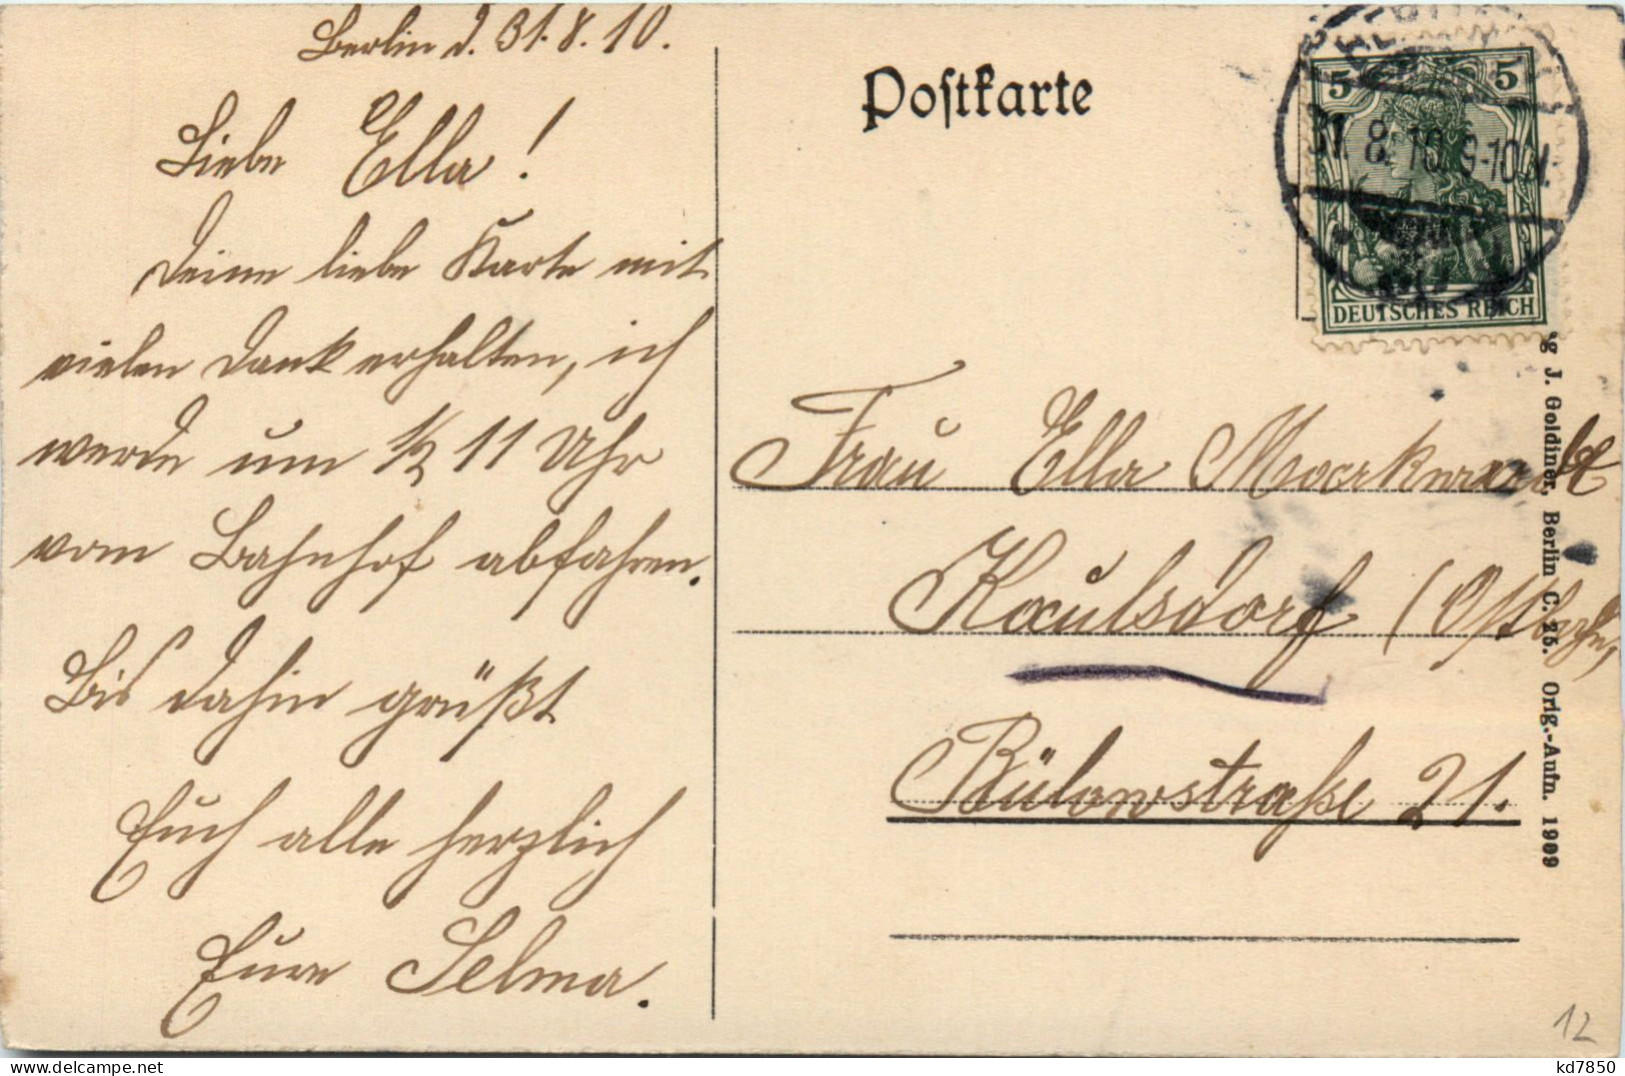 Berlin d. 31.8.10.
Liebe Ella!
Deine liebe Karte mit
vielen Dank erhalten, ich
werde um 1/2 11 Uhr
vom Bahnhof abfahren.
Bis dahin grüßt
Euch alle herzlich
Eure Selma.
Postkarte
5 5
DEUTSCHES REICH
31. 8. 10. 9-10 N.
Frau Ella Markwardt
Kaulsdorf (Ostbahn,
Bülowstraße 21.
g J. Goldiner, Berlin C. 25. Orig.-Aufn. 1909
12
kd7850